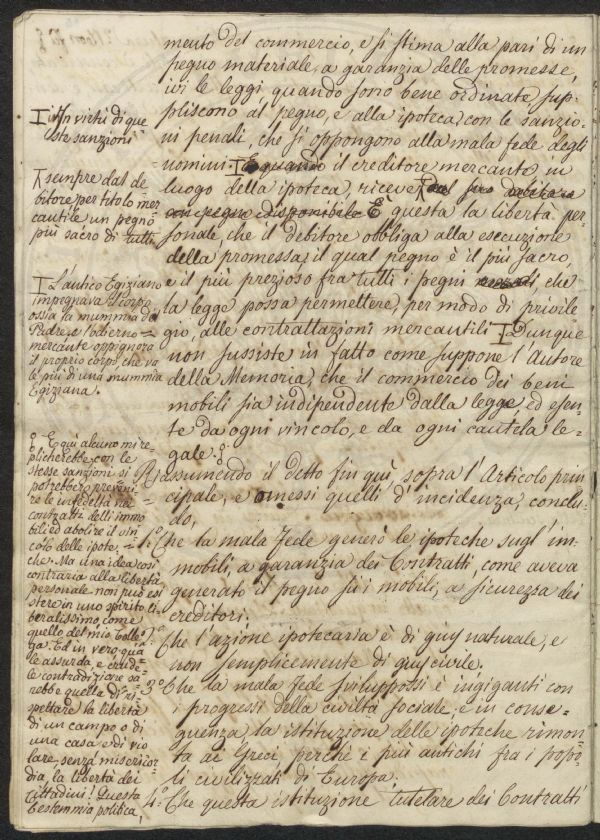 mento del commercio, e si stima alla pari di un
pegno materiale, a garanzia delle promesse,
ivi le leggi quando sono bene ordinate sup-
pliscono al pegno, e alla ipoteca, con le sanzio-
ni penali, che si oppongono alla mala fede degli
uomini. E quando il creditore mercante in
luogo della ipoteca, riceve
con pegno disponibile E questa la libertà per-
sonale, che il debitore obbliga alla esecuzione
della promessa, il qual pegno è il più sacro,
e il più prezioso fra tutti i pegni che
la legge possa permettere, per modo di privile
gio, alle contrattazioni mercantili. Dunque
non sussiste in fatto come suppone l'Autore
della Memoria, che il commercio dei beni
mobili sia indipendente dalla legge, ed esen-
te da ogni vincolo, e da ogni cautela le-
gale.
Riassumendo il detto fin quì, sopra l'Articolo prin-
cipale, e omessi quelli d'incidenza, conclu-
do,
1.º Che la mala fede generò le ipoteche sugl'im-
mobili, a garanzia dei Contratti, come aveva
generato il pegno sui mobili, a sicurezza dei
creditori.
2.º Che l'azione ipotecaria è di gius naturale, e
non semplicemente di gius civile.
3.º Che la mala fede sviluppossi e ingiganti con
i progressi della civiltà sociale, e in conse-
guenza la istituzione delle ipoteche rimon-
ta ai Greci, perchè i più antichi fra i popo-
li civilizzati di Europa.
4.º Che questa istituzione tutelare dei Contratti
In virtù di que
ste sanzioni
sempre dal de-
bitore per titolo mer
cantile un pegno
più sacro di tutti
L'antico Egiziano
impegnava il corpo
ossia la mummia del
Padre, il moderno
mercante oppignora
il proprio corpo, che va
le più di una mummia
Egiziana.
E qui alcuno mi re-
plicherebbe con le
stesse sanzioni si
potrebbero preveni-
re le infedeltà nei
contratti delli immo
bili ed abolire il vin
colo delle ipote-
che. Ma una idea così
contraria alla libertà
personale non può esi
stere in uno spirito li
beralissimo, come
quello del mio Colle-
ga. Ed in vero qua
le assurda, e crude-
le contradizione sa
rebbe quella di ri-
spettare la libertà
di un campo o di
una casa e di vio
lare, senza misericor
dia, la libertà dei
Cittadini! Questa
bestemmia politica,